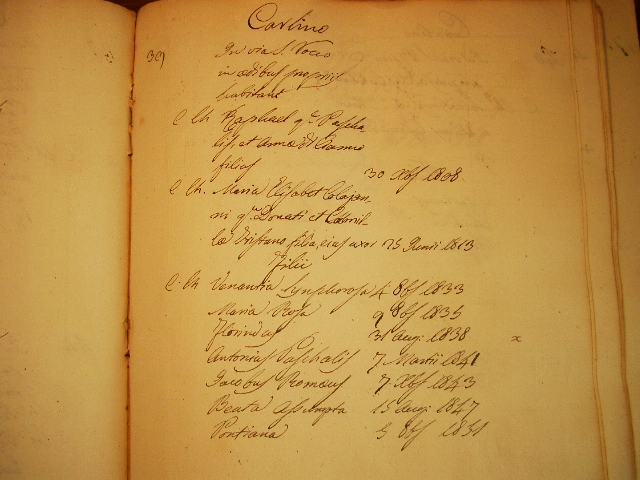 Carlino
39 In via S. Rocco
in ædibus propriis
habitant
C Ch Raphael q.m Pascha
lis, et Annæ di
filius 30 Xbs 1808
C Ch. Maria Elisabet Colajan
ni q.m Donati et Camil
læ Tristano filia, ejus uxor 25 Junii 1813
Filii
C. Ch Venantia Symphorosa 4 8bs 1833
Maria Rosa 9 8bs 1835
Florindus 31 Augi 1838 x
Antonius Paschalis 7 Martii 1841
Jacobus Romæus 7 Xbs 1843
Beata Assumpta 15 Augi 1847
Pontiana 5 8bs 1851